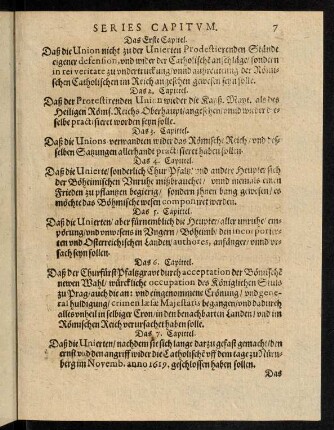 SERIES CAPITVM. 7
Das Erste Capitel.
Daß die Union nicht zu der Unierten Protestierenden Stände
eigener defension, vnd wider der Catholischē anschläge/ sondern
in rei veritate zu vndertruckung/ vnnd außreutung der Römi-
schen Catholischen im Reich angesehen gewesen seyn solle.
Das 2. Capitel.
Daß der Protestirenden Union wieder die Käys. Mayt. als des
Heiligen Röm. Reichs Oberhaupt angesehen/ vnnd wider di-
eselbe practisieret worden seyn solle.
Das 3. Capittel.
Daß die Unions verwandten wider das Römische Reich/ vnd des-
selben Satzungen allerhandt practisieret haben sollen.
Das 4. Capittel.
Daß die Unierte/ sonderlich Chur Pfaltz/ vnd andere Heupter sich
der Böheimischen Vnruhe mißbrauchet/ vnnd niemals einen
Frieden zu pflantzen begierig/ sondern jhnen bang gewesen/ es
möchte das Böhmische wesen componiret werden.
Das 5. Capittel.
Daß die Unierten/ aber fürnemblich die Heupter/ aller vnruhe/ em-
pörung/ vnd vnwesens in Vngern/ Böheimb/ den incorporier-
ten vnd Osterreichischen Landen/ authores, anfänger/ vnnd vr-
sach seyn sollen.
Das 6. Capittel.
Daß der Churfürst Pfaltzgrave durch acceptation der Bömischē
newen Wahl/ würckliche occupation des Königlichen Stuls
zu Prag/ auch die an: vnd eingenommene Crönung/ vnd gene-
ral huldigung/ crimen læsæ Majestatis begangen/ vnd dadurch
alles vnheil in selbiger Cron/ in den benachbarten Landen/ vnd im
Römischen Reich verursachet haben solle.
Das 7. Capittel.
Daß die Unierten/ nachdem sie sich lange darzu gefast gemacht/ den
ernst vnd den angriff wider die Catholische vff dem tage zu Nürn-
berg im Novemb. anno 1619. geschlossen haben sollen.
Das